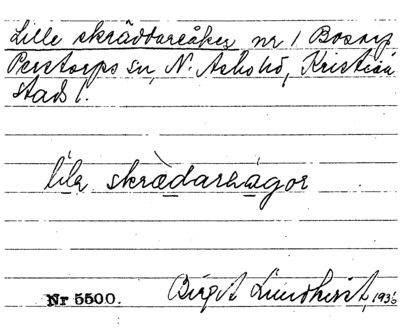 Lille skräddareåker nr 1 Bosarp
Perstorps sn, N. Åsbo hd, Kristian
stads l.
lila skrædarhagor
Nr 5500. Birgit Lindkvist, 1936